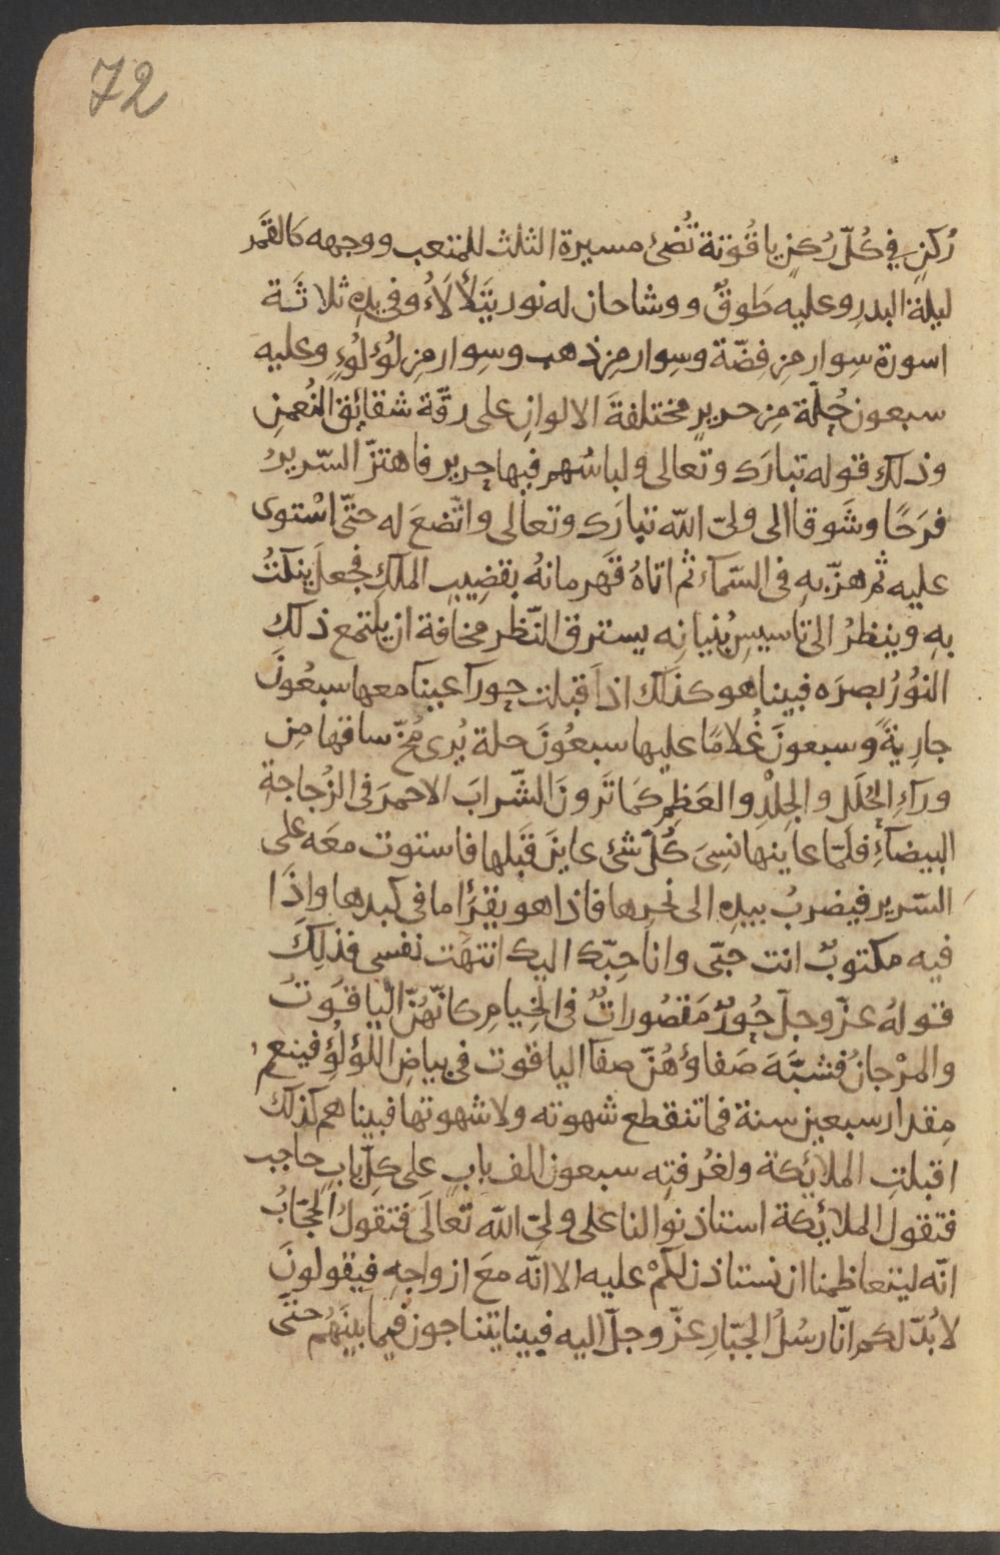 72
رُكنٍ في كُلّ رُكنٍ ياقُوتة تُضئ مسيرة الثلث للمتعب ووجهه كالقَمر
ليلة البدرِ وعليه طَوقٌ ووشاحان له نور يَتَلألَاءُ وفي يدِه ثلاثَة
اسورة سِوار من فِضّة وسِوار من ذهب وسِوار من لُؤلُوءٍ وعليه
سبعون حُلّة مِن حريرٍ مختلفةَ الالوانِ على رقّة شقائق النُعمن
وذلك قوله تبارَك وتعالى ولباسُهم فيها حرير فاهتزّ السّريرُ
فرَحًا وشَوقا الى ولىّ اللّه تبارَك وتعالى واتّضعَ له حتّى اسْتوى
عليه ثم هزّ بهِ فى السّماء ثم اتاهُ قَهرمانهُ بقضِيبِ الملكِ فجعلَ ينكتُ
بهِ وينظرُ الى تاسيسِ بُنيانِه يسترق النّظر مخافة ان يلتمع ذلك
النوُرُ بصرَه فبينا هو كذلك اذ اَقبلت حورآ عينا معها سبعُونَ
جارِيةً وسبعونَ غُلامًا عليها سبعُونَ حلة يُرى مُخّ ساقها مِن
ورآءِ الحُلَل والجِلْدِ والعَظمِ كمَا تَرونَ الشّرابَ الاحمرَ فى الزُجاجةِ
البيضآءِ فلَمّا عاَينها نسِىَ كُلّ شئ عاين قَبلها فاستوت معَه على
السّرير فيضربُ بيدِه الى نحرِها فاذا هو يقرَأ ما فى كبدها واذَا
فيه مكتوبٌ انت حبّى وانا حِبّك اليك انتهَت نفسى فذلِكَ
قولهُ عزّ وجلّ حُورٌ مَقصُوراتٌ فى الخِيامِ كانّهُنّ اليَاقوُتُ
والمرْجانُ فشبّهَ صَفاؤهُنّ صفآ الياقوت فى بياضِ اللؤلُؤِ فينعم
مِقدار سبعين سنة فما تنقطع شهوته ولا شهوتها فبينا هم كذلك
اقبلتِ الملائكة ولغُرفتِه سبعون الف بابٍ على كلّ بابٍ حاجب
فتقول الملائكة استاذنوا لنا على ولىّ اللّه تعالَى فتقولُ الحجّابُ
انّه ليتعاظمنا ان نستاذن لكمْ عليه الا انّه معَ ازواجهِ فيقولونَ
لا بُدّ لكم انّا رسُلُ الجبّارِ عزّ وجلّ اليه فبينا يتناجون فيما بينَهُم حتّى